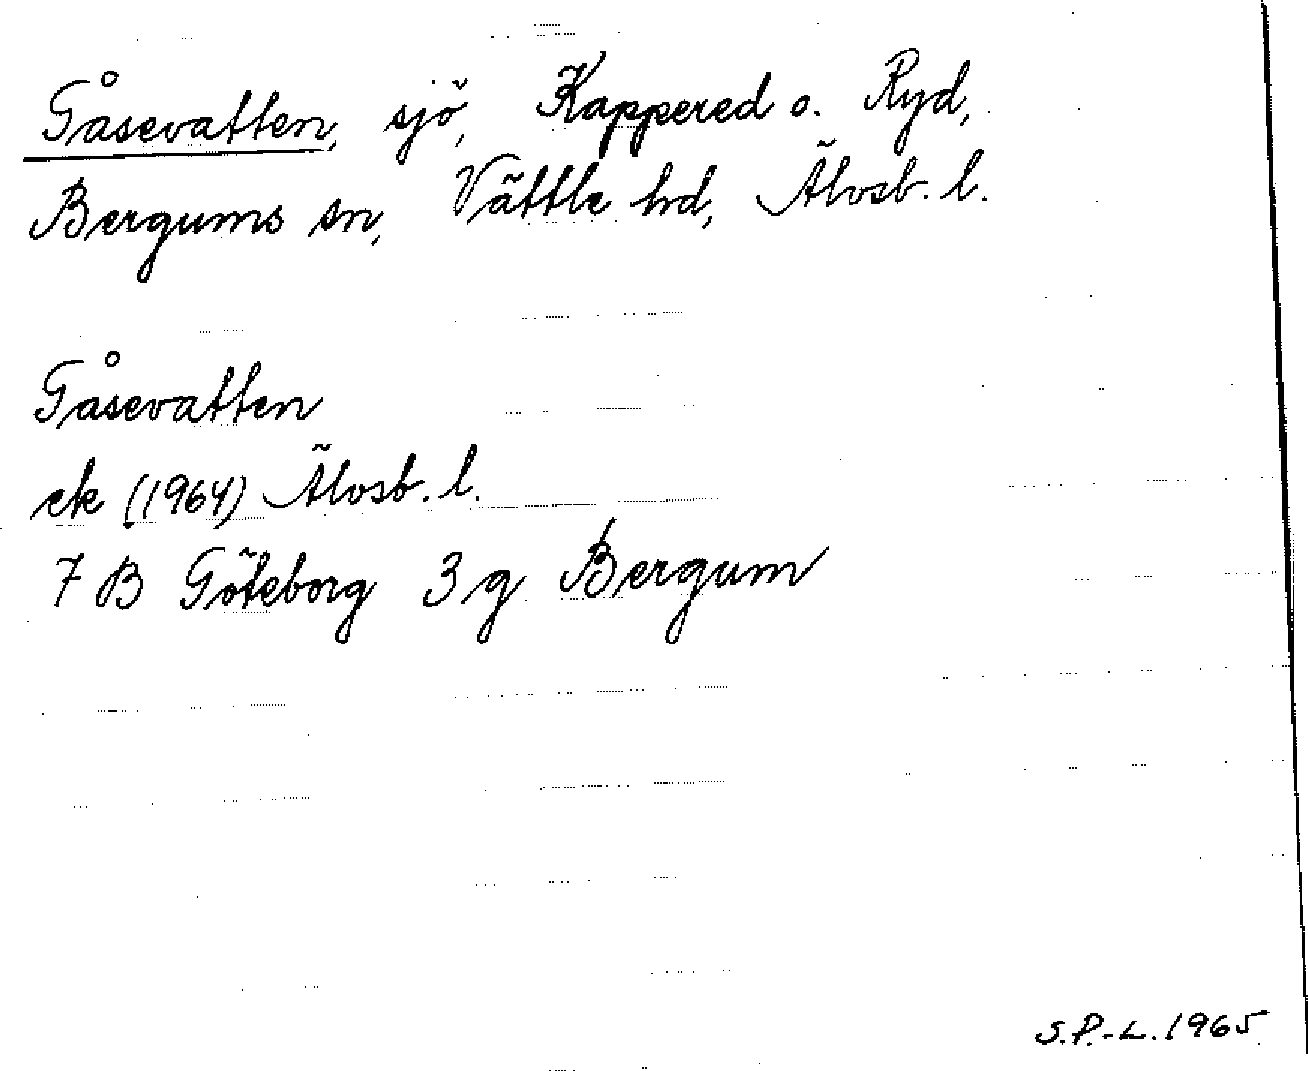 Gåsevatten, sjö, Kappered o. Ryd,
Bergums sn, Vättle hd, Älvsb. l.
Gåsevatten
ek (1964) Älvsb. l.
7 B Göteborg 3 g Bergum
S.P.-L. 1965